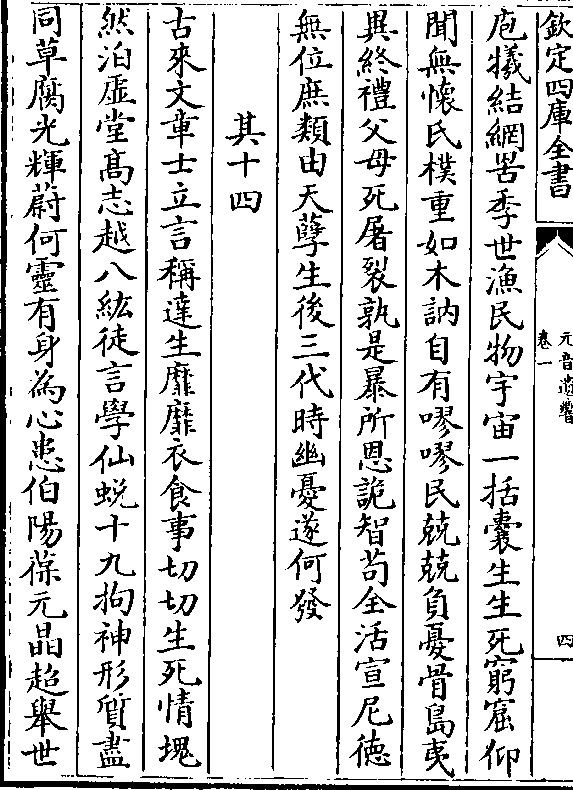 欽定四庫全書
元音遺響
卷一
四
庖犧結網罟季世漁民物宇宙一括囊生生死窮窟仰
聞無懷氏樸重如木訥自有嘐嘐民兢兢負憂骨島夷
異終禮父母死屠裂孰是暴所恩詭智苟全活宣尼德
無位庶類由天孽生後三代時幽憂遂何發
其十四
古來文章士立言稱達生靡靡衣食事切切生死情塊
然泊虛堂高志越八紘徒言學仙蛻十九拘神形質盡
同草腐光輝蔚何靈有身為心患伯陽葆元晶超舉世